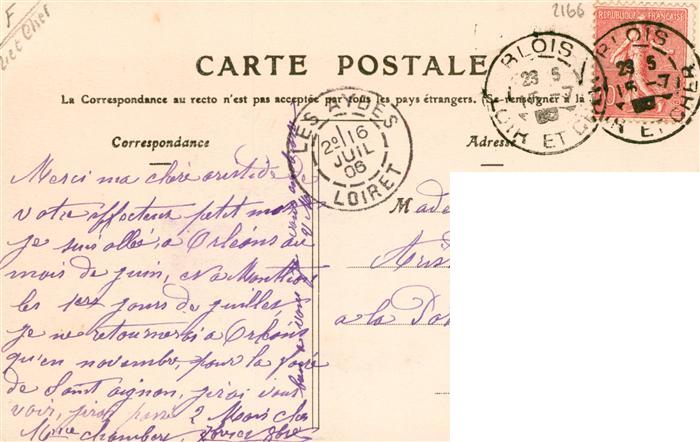 F
Loir et Cher
2166
REPUBLIQUE FRANÇAISE
BLOIS
23 5
15 -7
LOIR ET CHER
BLOIS
23 5
15 -7
LOIR ET CHER
CARTE POSTALE
La Correspondance au recto n'est pas acceptée par tous les pays étrangers. (Se renseigner à la
LES AYDES
2e 16
JUIL
06
LOIRET
Correspondance
Adresse
Merci ma chère aristide de
votre affectueux petit mot
je suis allée, a Orléans au
mois de juin, et a
les 1ers jours de juillet,
je ne retournerai a Orléans
qu'en novembre, pour la foire
de Saint aignan, j'irai vous
voir, j'irai passer 2 Mois chez
Mme chambert,
a vous
Made
Aris
a la